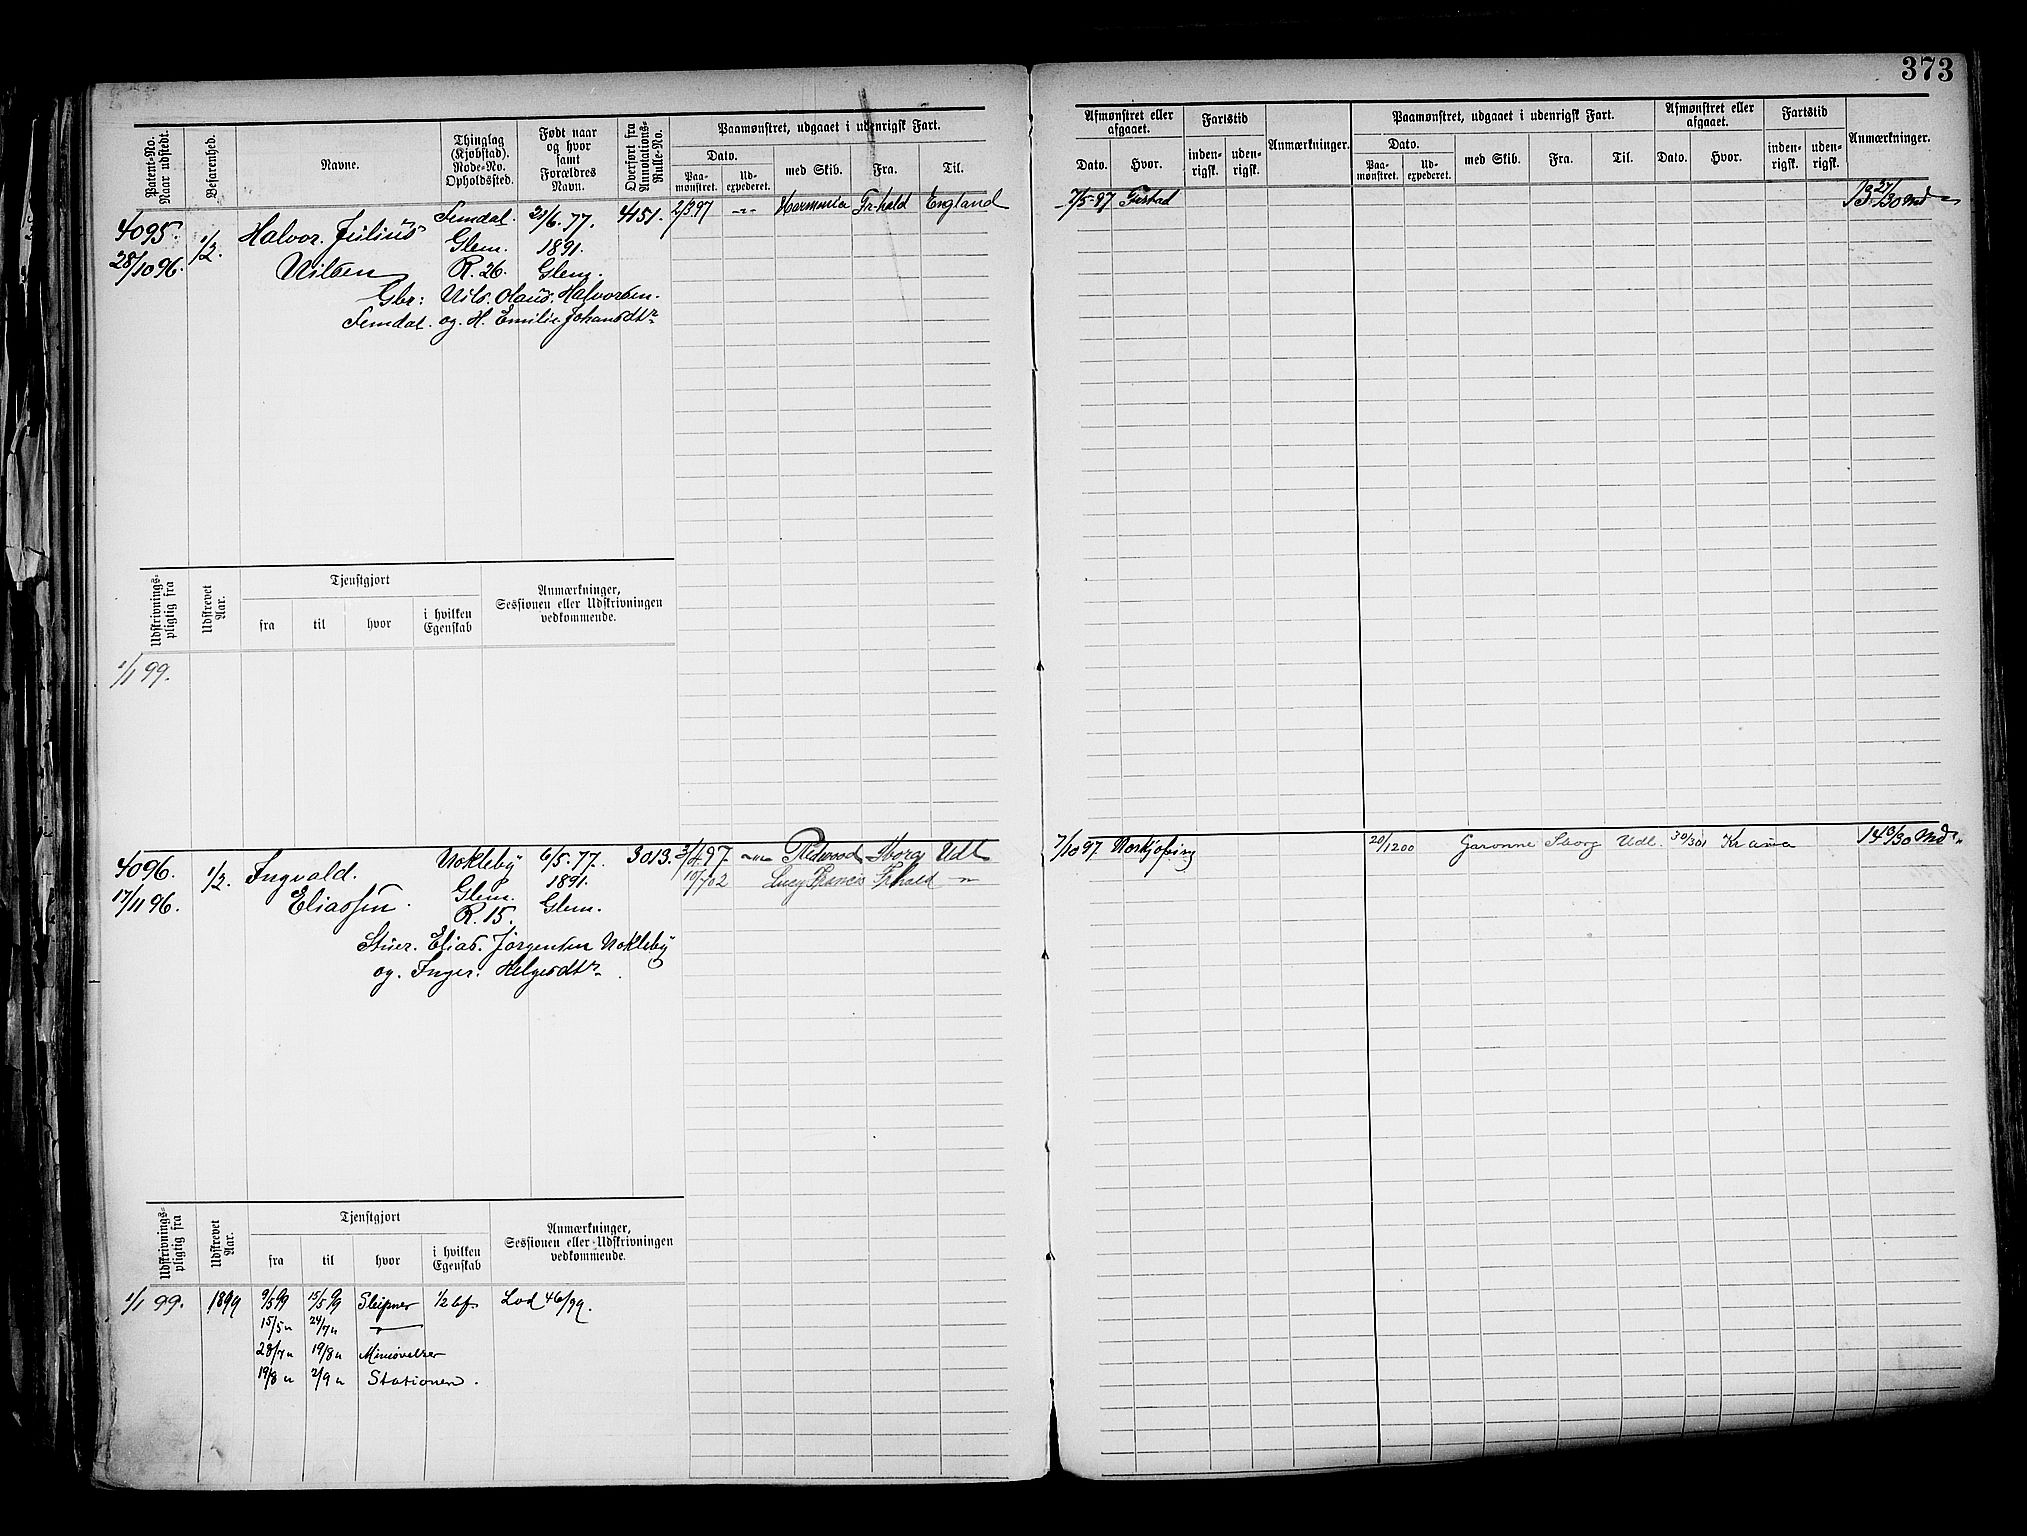 373
Patent-No. Naar udstedt.
Befarenhed.
Navne.
Thinglag (Kjøbstad). Rode-No. Opholdssted.
Født naar og hvor samt Forældres Navn.
Overført fra Annotations-Rulle-No.
Paamønstret, udgaaet i udenrigsk Fart.
Dato.
Paamønstret.
Udexpederet.
med Skib.
Fra.
Til.
Afmønstret eller afgaaet.
Dato.
Hvor.
Fartstid
indenrigsk.
udenrigsk.
Anmærkninger.
Paamønstret, udgaaet i udenrigsk Fart.
Dato.
Paamønstret.
Udexpederet.
med Skib.
Fra.
Til.
Afmønstret eller afgaaet.
Dato.
Hvor.
Fartstid
indenrigsk.
udenrigsk.
Anmærkninger.
4095. 1/2. Halvor Julius Femdal. 6.77. 4151. 2/3 97 Fr.hald England 7/5-97
28/10 96. Nilsen Glem. 1891.
R. 26. Glem.
Gbr: Nils Olaus Halvorsen
Femdal. og H. Emilie Johansdtr
Udskrivningspligtig fra
Udskrevet Aar.
Tjenstgjort
fra
til
hvor
i hvilken Egenskab
Anmærkninger, Sessionen eller Udskrivningen vedkommende.
1/1 99.
4096. 1/2. Ingvald Nokleby 6/5. 77. 3013. 97 Redwood Sborg Udl 7/10 97 20/12 00 Garonne Sborg Udl. 30/3 01 Kr ania
17/11 96. Eliassen. Glem. 1891. 02 Lucy Francis Frhald
R. 15. Glem.
Stuer. Elias Jørgensen Nokleby
og Inger Helgesdtr.
Udskrivningspligtig fra
Udskrevet Aar.
Tjenstgjort
fra
til
hvor
i hvilken Egenskab
Anmærkninger, Sessionen eller Udskrivningen vedkommende.
1/1 99. 1899 9/5 99 15/5 99 Sleipner 1/2 bf. Lod 46/99.
15/5 " 24/7 "
28/7 " 19/8 " Mineøvelser
19/8 " 2/9 " Stationen.